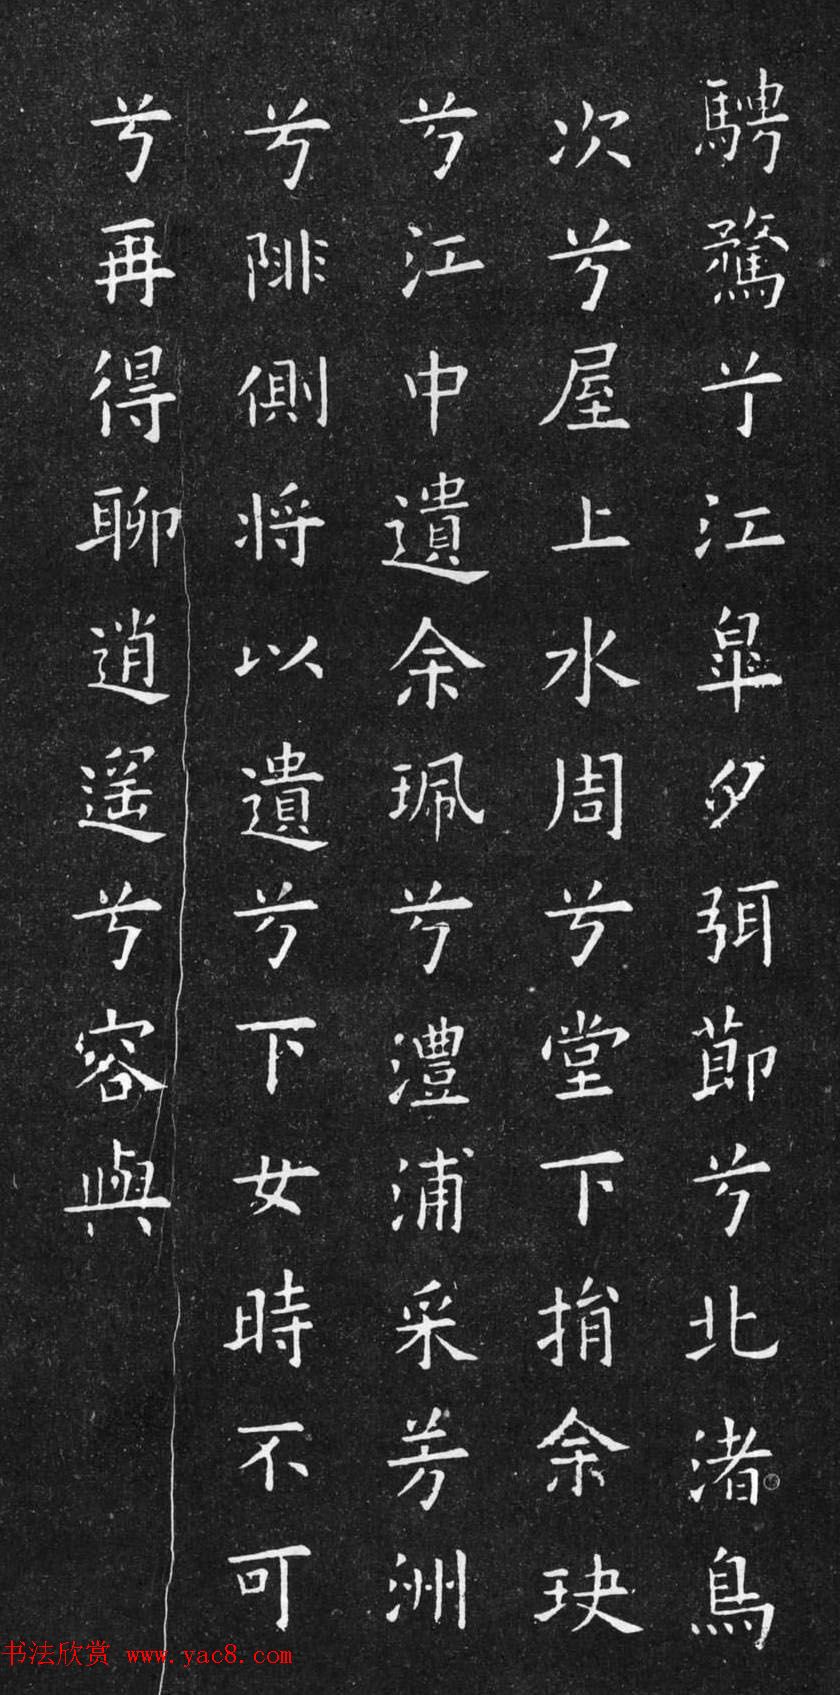 騁騖兮江皋夕弭節兮北渚鳥
次兮屋上水周兮堂下捐余玦
兮江中遺余珮兮澧浦采芳洲
兮陫側将以遺兮下女時不可
兮再得聊逍遥兮容與
书法欣赏 www.yac8.com